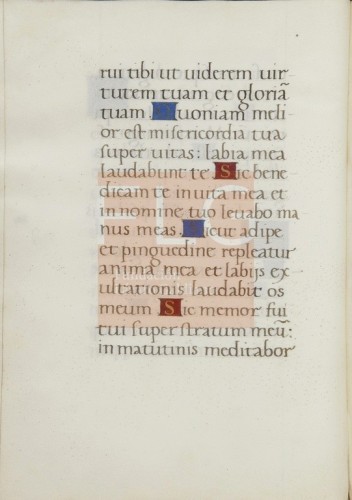 rui tibi ut uiderem uir
tutem tuam et gloriā
tuam. Quoniam meli
or est misericordia tua
super uitas: labia mea
laudabunt te. Sic bene
dicam te in uita mea et
in nomine tuo leuabo ma
nus meas. Sicut adipe
et pinguedine repleatur
anima mea et labijs ex
ultationis laudabit os
meum. Sic memor fui
tui super stratum meū:
in matutinis meditabor
FLG